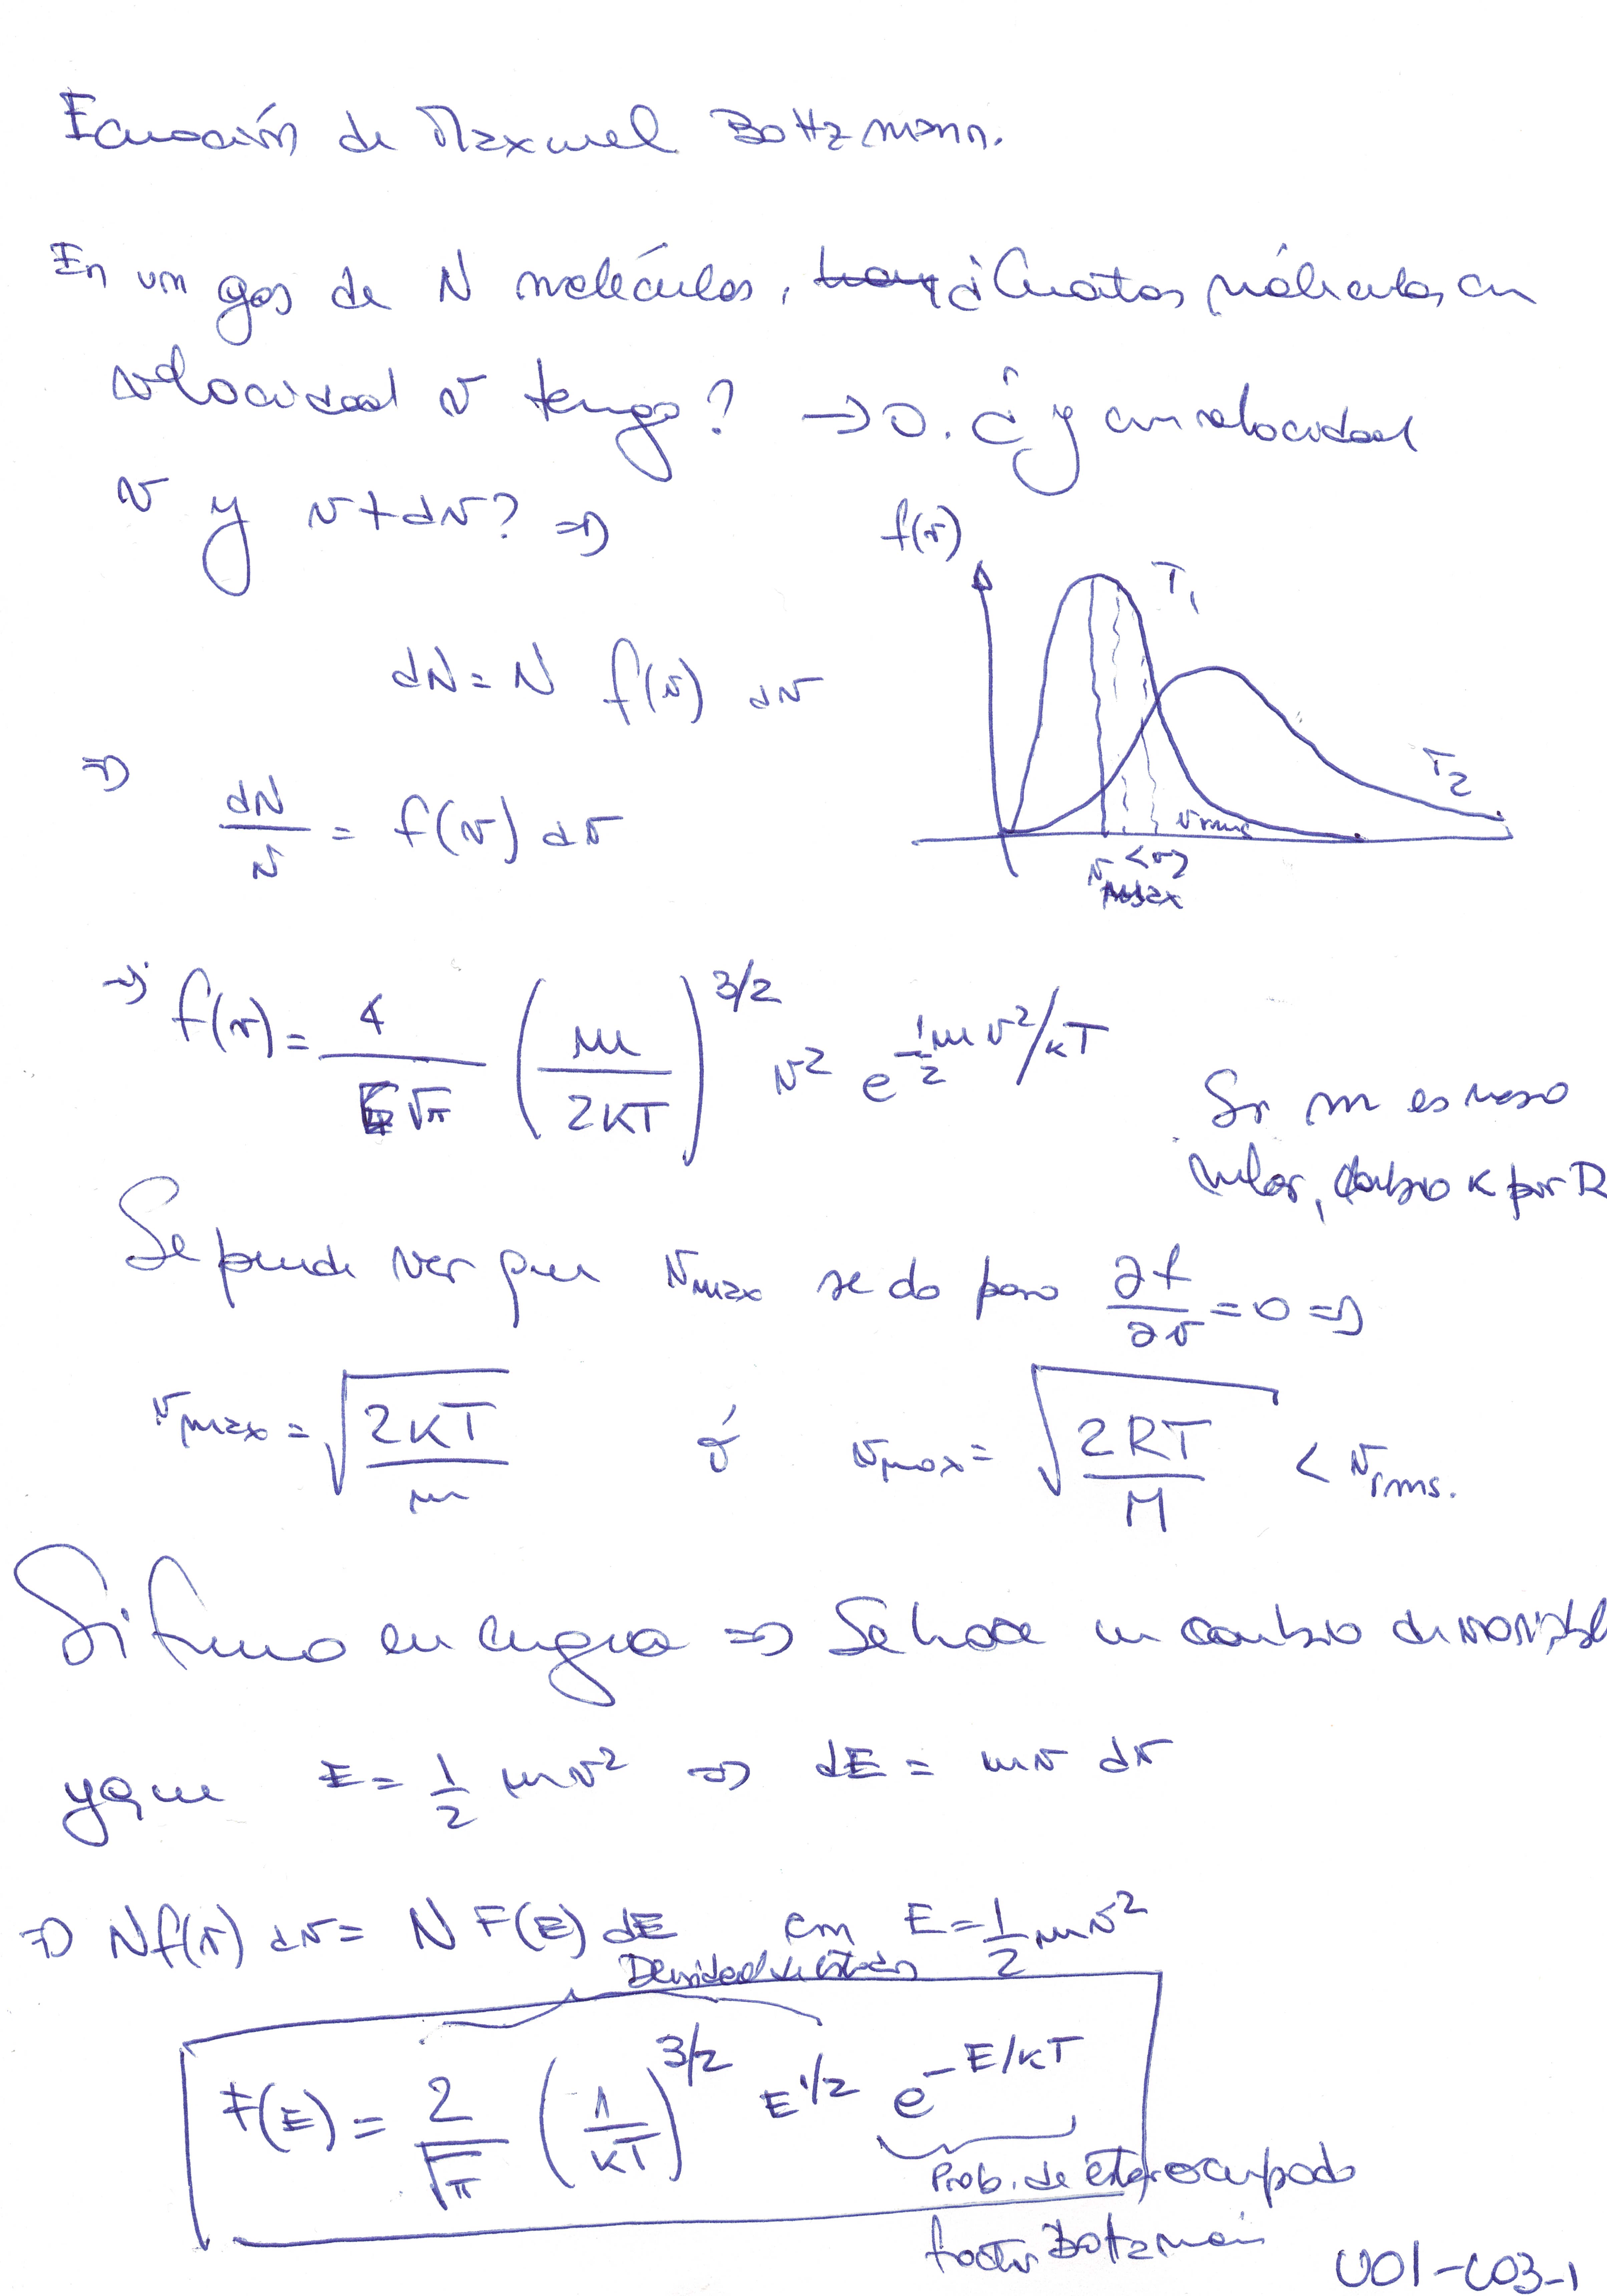 Ecuación de Maxwel Boltzmann.
En un gas de N moléculas, ¿Cuántas moléculas con
velocidad v tengo? → 0. ¿y con velocidad
v y v+dv? ⇒
f(v)
T₁
T₂
v rms
<v>
v max
dN = N f(v) dv
⇒ dN/N = f(v) dv
⇒ f(v) = 4/√π (m/2kT)^3/2 v² e^-½mv²/kT
Si m es masa
molar, cambio k por R
Se puede ver que v max se da para ∂f/∂v = 0 ⇒
v max = √(2kT/m) ó v max = √(2RT/M) < v rms.
Si fuera en energía ⇒ Se hace un cambio de variable
ya que E = ½ mv² ⇒ dE = mv dv
⇒ N f(v) dv = N F(E) dE con E = ½ mv²
Densidad de estados
F(E) = 2/√π (1/kT)^3/2 E^1/2 e^-E/kT
Prob. de estar ocupado
factor Boltzmann
U01-C03-1